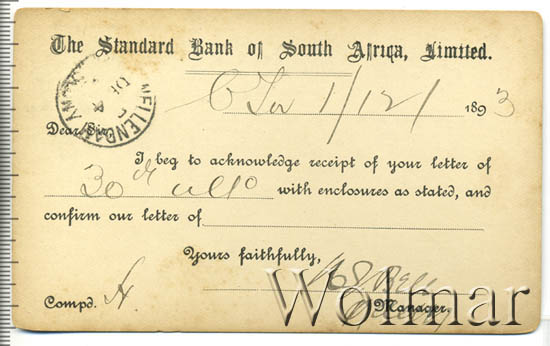 The Standard Bank of South Africa, Limited.
1/12/ 1893
Dear Sir,
I beg to acknowledge receipt of your letter of
30th ulto with enclosures as stated, and
confirm our letter of
Yours faithfully,
Manager.
Compd.
Wolmar